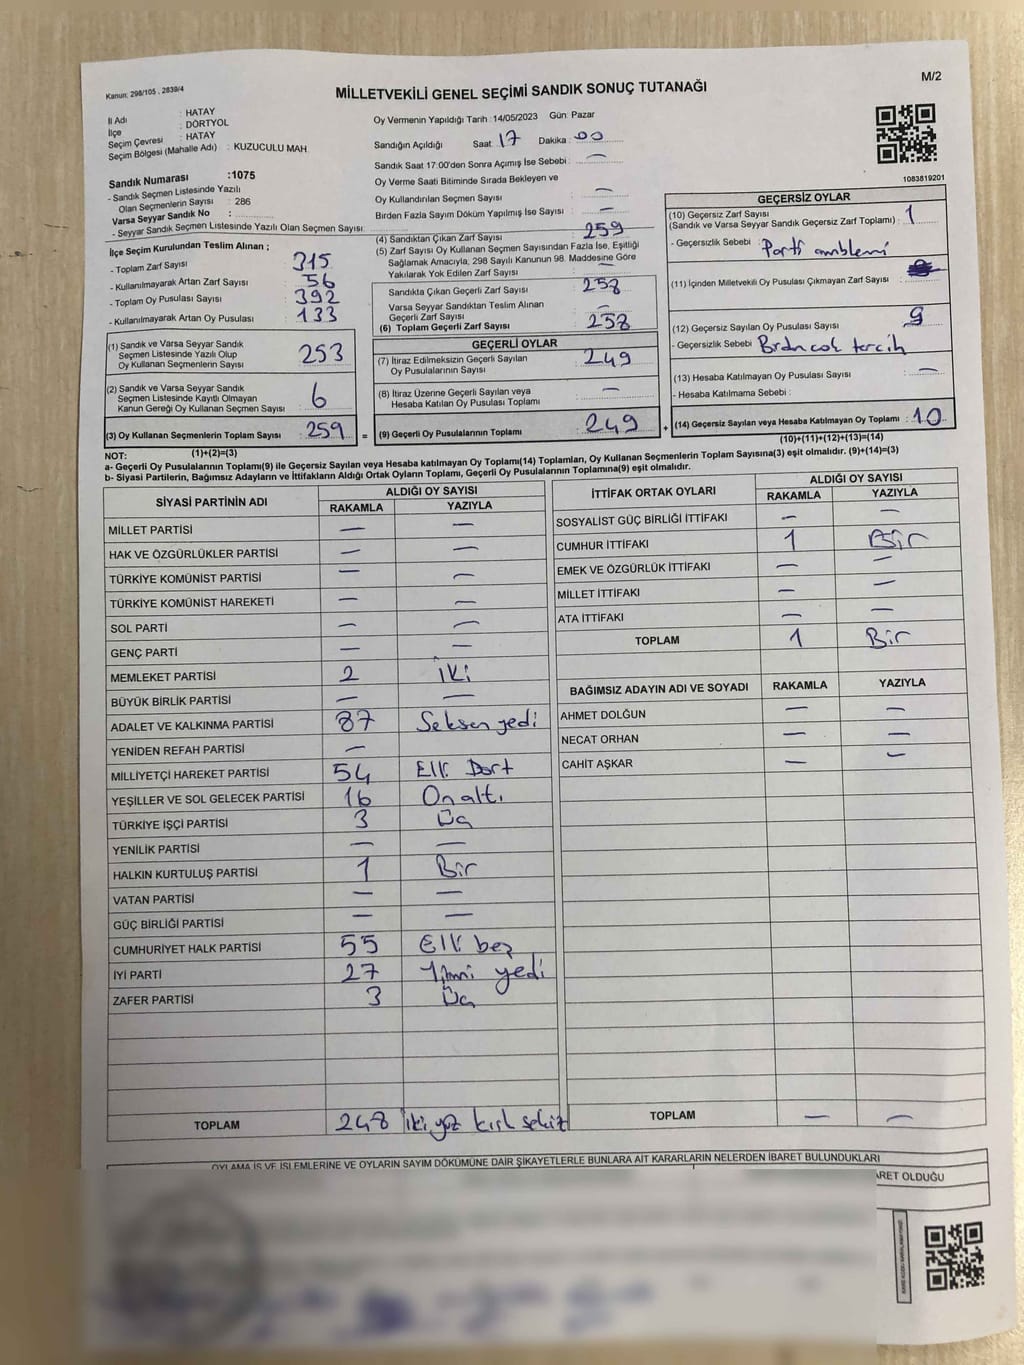 Kanun: 298/105 , 2839/4
M/2
MİLLETVEKİLİ GENEL SEÇİMİ SANDIK SONUÇ TUTANAĞI
İl Adı : HATAY
İlçe : DÖRTYOL
Seçim Çevresi : HATAY
Seçim Bölgesi (Mahalle Adı) : KUZUCULU MAH.
Oy Vermenin Yapıldığı Tarih : 14/05/2023 Gün: Pazar
Sandığın Açıldığı Saat : 17 Dakika : 00
Sandık Saat 17:00'den Sonra Açımış İse Sebebi : —
Oy Verme Saati Bitiminde Sırada Bekleyen ve
Oy Kullandırılan Seçmen Sayısı : —
Birden Fazla Sayım Döküm Yapılmış İse Sayısı : —
1083819201
Sandık Numarası :1075
- Sandık Seçmen Listesinde Yazılı
Olan Seçmenlerin Sayısı : 286
Varsa Seyyar Sandık No :
- Seyyar Sandık Seçmen Listesinde Yazılı Olan Seçmen Sayısı:
İlçe Seçim Kurulundan Teslim Alınan ;
- Toplam Zarf Sayısı : 315
- Kullanılmayarak Artan Zarf Sayısı : 56
- Toplam Oy Pusulası Sayısı : 392
- Kullanılmayarak Artan Oy Pusulası : 133
(1) Sandık ve Varsa Seyyar Sandık
Seçmen Listesinde Yazılı Olup
Oy Kullanan Seçmenlerin Sayısı : 253
(2) Sandık ve Varsa Seyyar Sandık
Seçmen Listesinde Kayıtlı Olmayan
Kanun Gereği Oy Kullanan Seçmen Sayısı : 6
(3) Oy Kullanan Seçmenlerin Toplam Sayısı : 259
(1)+(2)=(3)
(4) Sandıktan Çıkan Zarf Sayısı : 259
(5) Zarf Sayısı Oy Kullanan Seçmen Sayısından Fazla İse, Eşitliği
Sağlamak Amacıyla, 298 Sayılı Kanunun 98. Maddesine Göre
Yakılarak Yok Edilen Zarf Sayısı : —
Sandıkta Çıkan Geçerli Zarf Sayısı : 258
Varsa Seyyar Sandıktan Teslim Alınan
Geçerli Zarf Sayısı : —
(6) Toplam Geçerli Zarf Sayısı : 258
GEÇERLİ OYLAR
(7) İtiraz Edilmeksizin Geçerli Sayılan
Oy Pusulalarının Sayısı : 249
(8) İtiraz Üzerine Geçerli Sayılan veya
Hesaba Katılan Oy Pusulası Toplamı : —
= (9) Geçerli Oy Pusulalarının Toplamı : 249 +
GEÇERSİZ OYLAR
(10) Geçersiz Zarf Sayısı : 1
(Sandık ve Varsa Seyyar Sandık Geçersiz Zarf Toplamı)
- Geçersizlik Sebebi : Parti amblemi
(11) İçinden Milletvekili Oy Pusulası Çıkmayan Zarf Sayısı :
(12) Geçersiz Sayılan Oy Pusulası Sayısı : 9
- Geçersizlik Sebebi : Birdan çok tercih
(13) Hesaba Katılmayan Oy Pusulası Sayısı : —
- Hesaba Katılmama Sebebi :
(14) Geçersiz Sayılan veya Hesaba Katılmayan Oy Toplamı : 10
(10)+(11)+(12)+(13)=(14)
NOT:
a- Geçerli Oy Pusulalarının Toplamı(9) ile Geçersiz Sayılan veya Hesaba katılmayan Oy Toplamı(14) Toplamları, Oy Kullanan Seçmenlerin Toplam Sayısına(3) eşit olmalıdır. (9)+(14)=(3)
b- Siyasi Partilerin, Bağımsız Adayların ve İttifakların Aldığı Ortak Oyların Toplamı, Geçerli Oy Pusulalarının Toplamına(9) eşit olmalıdır.
SİYASİ PARTİNİN ADI ALDIĞI OY SAYISI
RAKAMLA YAZIYLA
MİLLET PARTİSİ — —
HAK VE ÖZGÜRLÜKLER PARTİSİ — —
TÜRKİYE KOMÜNİST PARTİSİ — —
TÜRKİYE KOMÜNİST HAREKETİ — —
SOL PARTİ — —
GENÇ PARTİ — —
MEMLEKET PARTİSİ 2 İki
BÜYÜK BİRLİK PARTİSİ — —
ADALET VE KALKINMA PARTİSİ 87 Seksen yedi
YENİDEN REFAH PARTİSİ —
MİLLİYETÇİ HAREKET PARTİSİ 54 Elli Dört
YEŞİLLER VE SOL GELECEK PARTİSİ 16 Onaltı
TÜRKİYE İŞÇİ PARTİSİ 3 Üç
YENİLİK PARTİSİ — —
HALKIN KURTULUŞ PARTİSİ 1 Bir
VATAN PARTİSİ — —
GÜÇ BİRLİĞİ PARTİSİ — —
CUMHURİYET HALK PARTİSİ 55 Elli beş
İYİ PARTİ 27 Yirmi yedi
ZAFER PARTİSİ 3 Üç
TOPLAM 248 iki yüz kırk sekiz
İTTİFAK ORTAK OYLARI ALDIĞI OY SAYISI
RAKAMLA YAZIYLA
SOSYALİST GÜÇ BİRLİĞİ İTTİFAKI — —
CUMHUR İTTİFAKI 1 Bir
EMEK VE ÖZGÜRLÜK İTTİFAKI — —
MİLLET İTTİFAKI — —
ATA İTTİFAKI — —
TOPLAM 1 Bir
BAĞIMSIZ ADAYIN ADI VE SOYADI RAKAMLA YAZIYLA
AHMET DOLĞUN — —
NECAT ORHAN — —
CAHİT AŞKAR — —
TOPLAM — —
OYLAMA İŞ VE İŞLEMLERİNE VE OYLARIN SAYIM DÖKÜMÜNE DAİR ŞİKAYETLERLE BUNLARA AİT KARARLARIN NELERDEN İBARET BULUNDUKLARI
ARET OLDUĞU